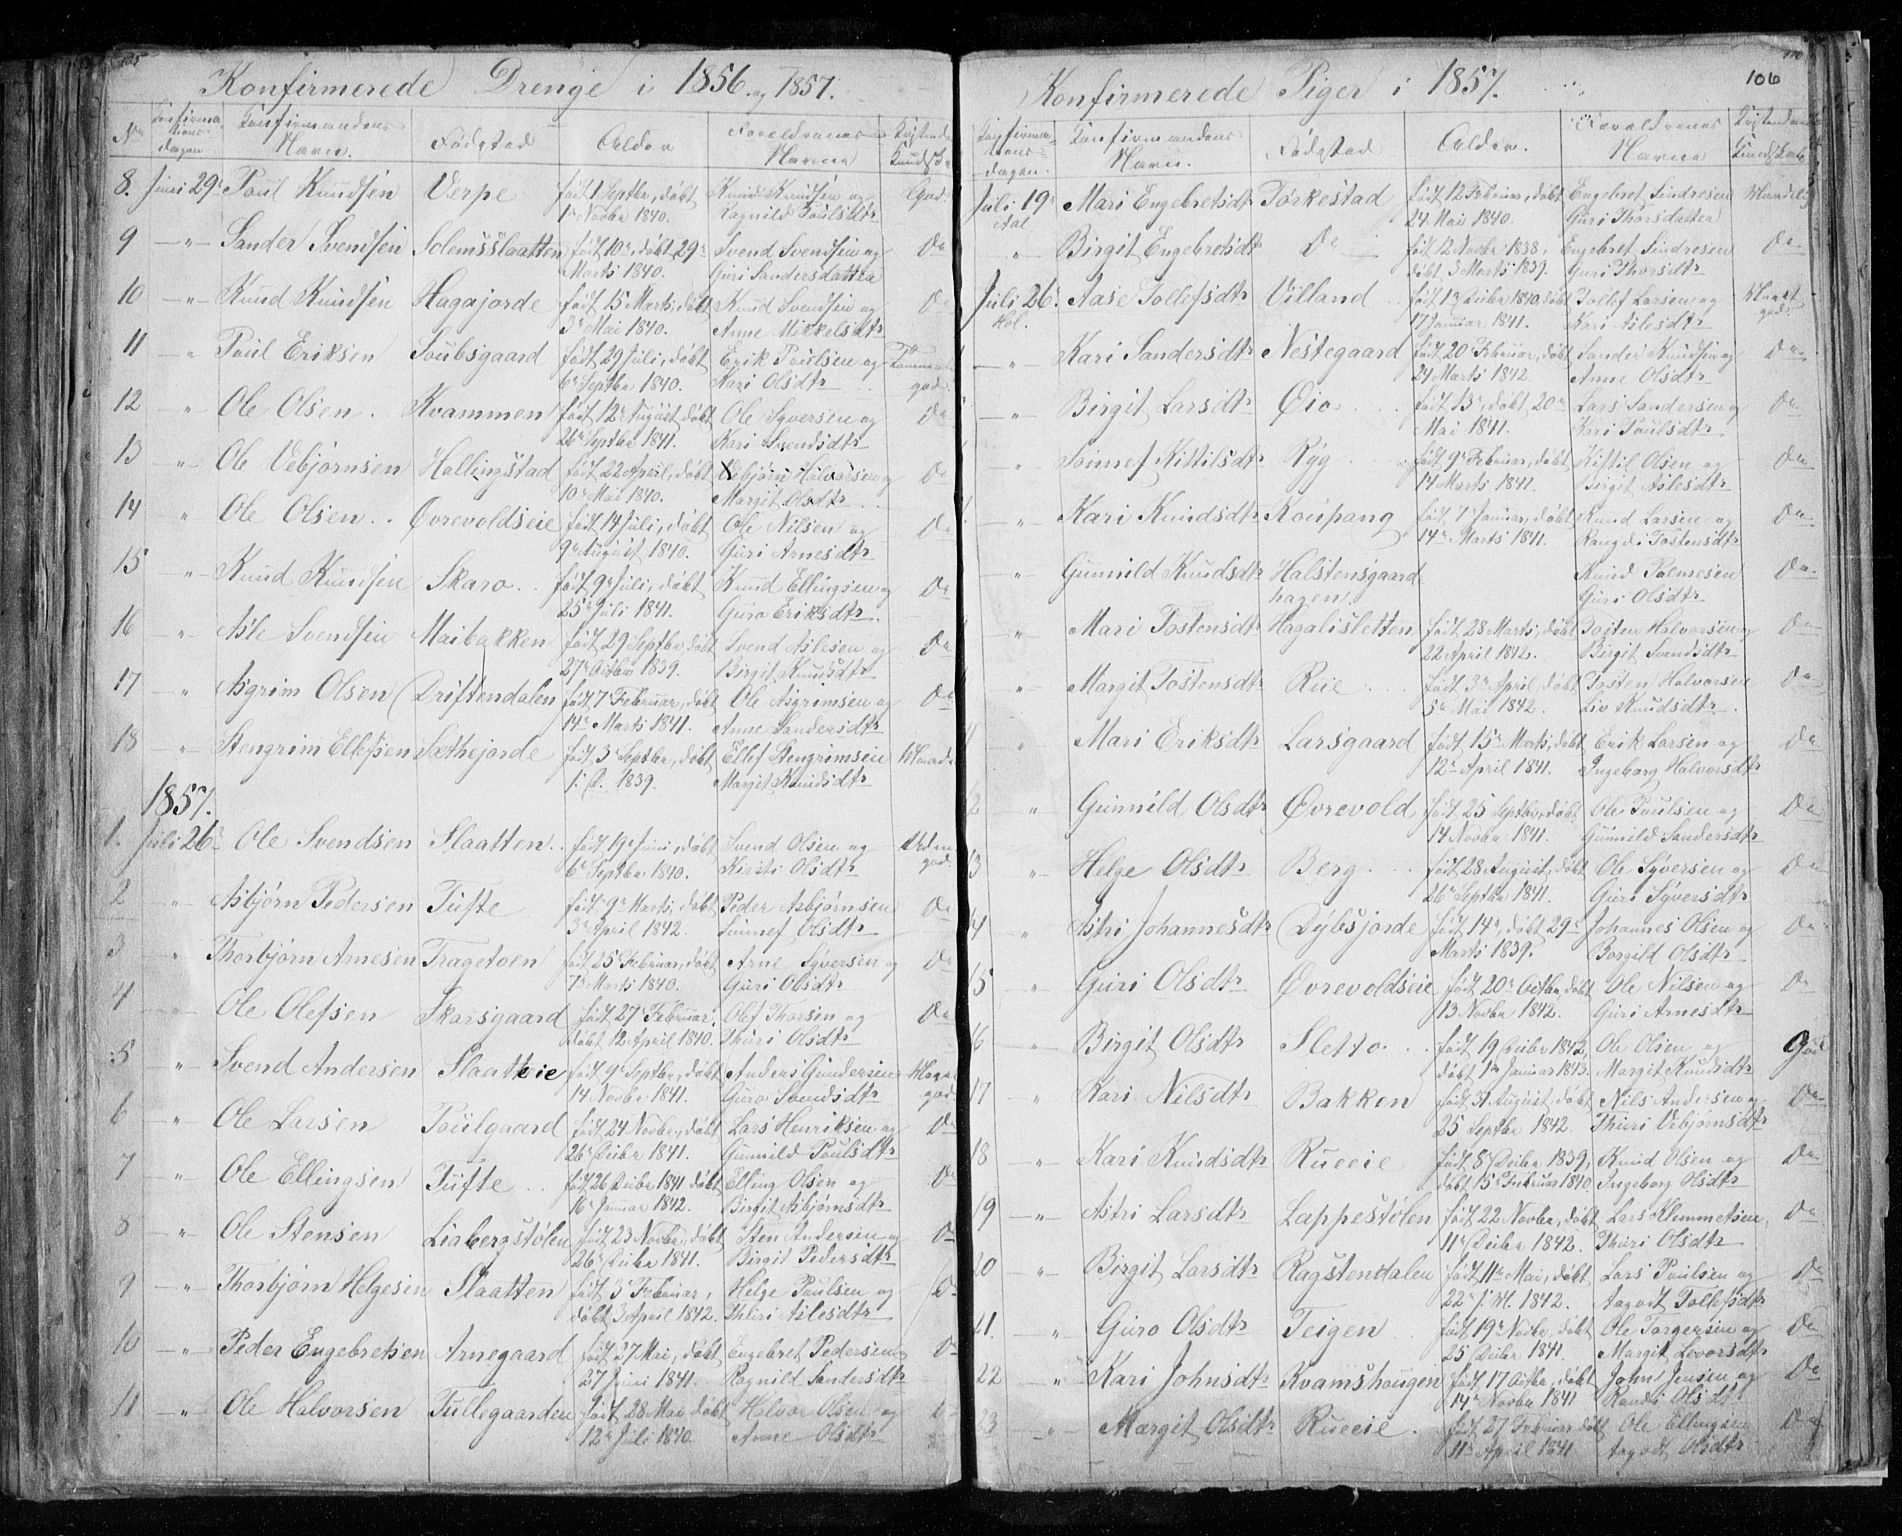 105
Konfirmerede Drenge i 1856 og 1857.
No Konfirmationsdagen Konfirmandens Navn. Fødested Alder Forældrenes Navne Kristend. Kundsk.
8. Juni 29 Poul Knudsen Verpe født 1 Septbr, døbt Knud Knudsen og God.
1 Novbr 1840. Ragnild Poulsdtr
9 -"- Sander Svendsen Solemsslaatten født 10, døbt 29 Svend Svendsen og Do
Marts 1840. Guri Sandersdatter
10 -"- Knud Knudsen Hagajorde født 15 Marts, døbt Knud Svendsen og Do
3 Mai 1840. Anne Mikkelsdtr
11 " Poul Eriksen Soubsgaard født 29 Juli, døbt Erik Poulsen og
6 Septbr 1840. Kari Olsdtr god.
12 " Ole Olsen. Kvammen født 12 August, døbt Ole Syversen og Do
26 Septbr 1841. Kari Svendsdtr
13 -"- Ole Vebjørnsen Hallingstad født 22 April, døbt Vebjørn Halvorsen og Do
10 Mai 1840. Margit Olsdtr
14 " Ole Olsen. Øvrevoldseie født 14 Juli, døbt Ole Nilsen og Do
9 August 1840. Guri Arnesdtr
15 -"- Knud Knudsen Skaro født 9 Juli, døbt Knud Ellingsen og Do
25 Juli 1841. Guro Eriksdtr.
16 " Asle Svendsen Maibakken født 29 Septbr, døbt Svend Aslesen og Do
27 Octbr 1839. Birgit Knudsdtr
17 " Asgrim Olsen Driftendalen født 7 Februar, døbt Ole Asgrimsen og Do
14 Marts 1841. Anne Sandersdtr
18 " Stengrim Ellefsen Sæthejorde født 3 Septbr, døbt Ellef Stengrimsen
1839. Margit Knudsdtr
1857.
1. Juli 26 Ole Svendsen Slaatten. født 19 Juni, døbt Svend Olsen og
6 Septbr 1840. Kirsti Olsdtr god.
2 " Asbjørn Pedersen Tufte født 9 Marts, døbt Peder Asbjørnsen Do
3 April 1842. Sunnef Olsdtr
3 " Thorbjørn Arnesen Tragetoen født 25 Februar, døbt Arne Syversen og Do
7 Marts 1840. Guri Olsdtr
4 -"- Ole Olefsen Skarsgaard født 27 Februar, Olef Thorsen og Do
døbt 12 April 1840. Thuri Olsdtr
5 " Svend Andersen Slaatteie født 9 Septbr, døbt Anders Gundersen Meget
14 Novbr 1841. Guro Svendsdtr god.
6 -"- Ole Larsen Poulgaard født 24 Novbr, døbt Lars Henriksen og Do
26 Decbr 1841. Gunnild Poulsdtr
7 " Ole Ellingsen Tufte født 26 Decbr 1841 døbt Elling Olsen og Do
16 Januar 1842. Birgit Asbjørnsdtr
8 -"- Ole Stensen Liabergstølen født 23 Novbr, døbt Sten Andersen og Do
26 Decbr 1841. Birgit Pedersdtr
9 -"- Thorbjørn Helgesen Slaatten født 3 Februar, Helge Poulsen og Do
døbt 3 April 1842. Thuri Aslesdtr
10 -"- Peder Engebretsen Arnegaard født 27 Mai, døbt Engebret Pedersen Do
27 Juni 1841. Ragnild Sandersdtr
11 -"- Ole Halvorsen Tullegaarden født 28 Mai døbt Halvor Olsen og
12 Juli 1840. Anne Olsdtr
106
Konfirmerede Piger i 1857.
Konfirmationsdagen. Konfirmandens Navn. Fødested Alder. Forældrenes Navne Kristendoms Kundskab
Juli 19 Mari Engebretsdtr Torkestad født 12 Februar, døbt Engebret Sindresen
Aal 24 Mai 1840. Guri Thorsdatter
" Birgit Engebretsdtr Do født 12 Novbr 1838, Engebret Sindresen Do
døbt 3 Marts 1839. Guri Thorsdtr
Juli 26. Aase Tollefsdtr Villand født 1 Decbr 1840, døbt Tollef Larsen og Meget
Hol. 17 Januar 1841. Kari Aslesdtr god.
" Kari Sandersdtr Nestegaard født 20 Februar, døbt Sander Knudsen og Do
24 Marts 1842. Anne Olsdtr
" Birgit Larsdtr Øio født 13, døbt 20 Lars Sandersen og Do
Mai 1841. Kari Poulsdtr
" Sønnef Kittilsdtr Ryg født 9 Februar, døbt Kittil Olsen og Do
14 Marts 1841. Birgit Aslesdtr
" Kari Knudsdtr Koupang født 7 Januar, døbt Knud Larsen og Do
14 Marts 1841. Rangdi Tostensdtr
-"- Gunnild Knudsdtr Halstensgaard Knud Do
hagen Guri Olsdtr
" Mari Tostensdtr Hagalisletten født 28 Marts, døbt Tosten Halvorsen og Do
22 April 1842. Birgit Svendsdtr
-"- Margit Tostensdtr Rue født 3 April, døbt Tosten Halvorsen Do
5 Mai 1842. Liv Knudsdtr
" Mari Eriksdtr Larsgaard født 15 Marts, døbt Erik Larsen og Do
12 April 1841. Ingeborg Halvorsdtr
2 " Gunnild Olsdtr Øvrevold født 25 Septbr, døbt Ole Poulsen og Do
14 Novbr 1841. Gunnild Sandersdtr
13 " Helge Olsdtr Berg født 28 August, døbt Ole Syversen og Do
26 Septbr 1841. Guri Syversdtr
4 " Astri Johannesdtr Dybsjorde født 14, døbt 29 Johannes Olsen og Do
Marts 1839. Borgild Olsdtr
15 " Guri Olsdtr Øvrevoldseie født 20 Octbr, døbt Ole Nilsen og Do
13 Novbr 1842. Guri Arnesdtr
16 " Birgit Olsdtr Sletto født 19 Decbr 1842, Ole Olsen og God
døbt 1 Januar 1843. Margit Knudsdtr
17 " Kari Nilsdtr Bakken født 31 August, døbt Nils Andersen og Do
25 Septbr 1842. Thuri Vebjørnsdtr
18 -"- Kari Knudsdtr Rueeie født 8 Decbr 1839, Knud Olsen og Do
døbt 15 Februar 1840. Ingeborg Olsdtr
19 -"- Astri Larsdtr Lappestølen født 22 Novbr, døbt Lars Klemmetsen Do
11 Decbr 1842. Thuri Olsdtr
20 -"- Birgit Larsdtr Ragstendalen født 11 Mai, døbt Lars Poulsen og Do
22 s. M. 1842. Aagodt Tollefsdtr
21. -"- Guro Olsdtr Teigen født 19 Novbr, døbt Ole Torgersen og Do
25 Decbr 1841. Margit Levorsdtr
22 -"- Kari Johnsdtr Kvamshougen født 17 Octbr, døbt John Jensen og Do
14 Novbr 1841 Randi Olsdtr
23 -"- Margit Olsdtr Rueeie. født 27 Februar døbt Ole Ellingsen Do
11 April 1841 Aagodt Olsdtr